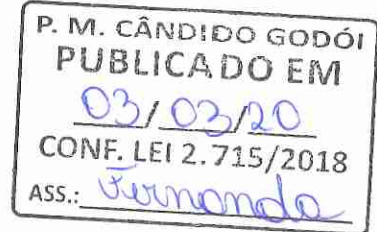 P. M. CÂNDIDO GODÓI
PUBLICADO EM
03/03/20
CONF. LEI 2.715/2018
ASS.: Fernanda